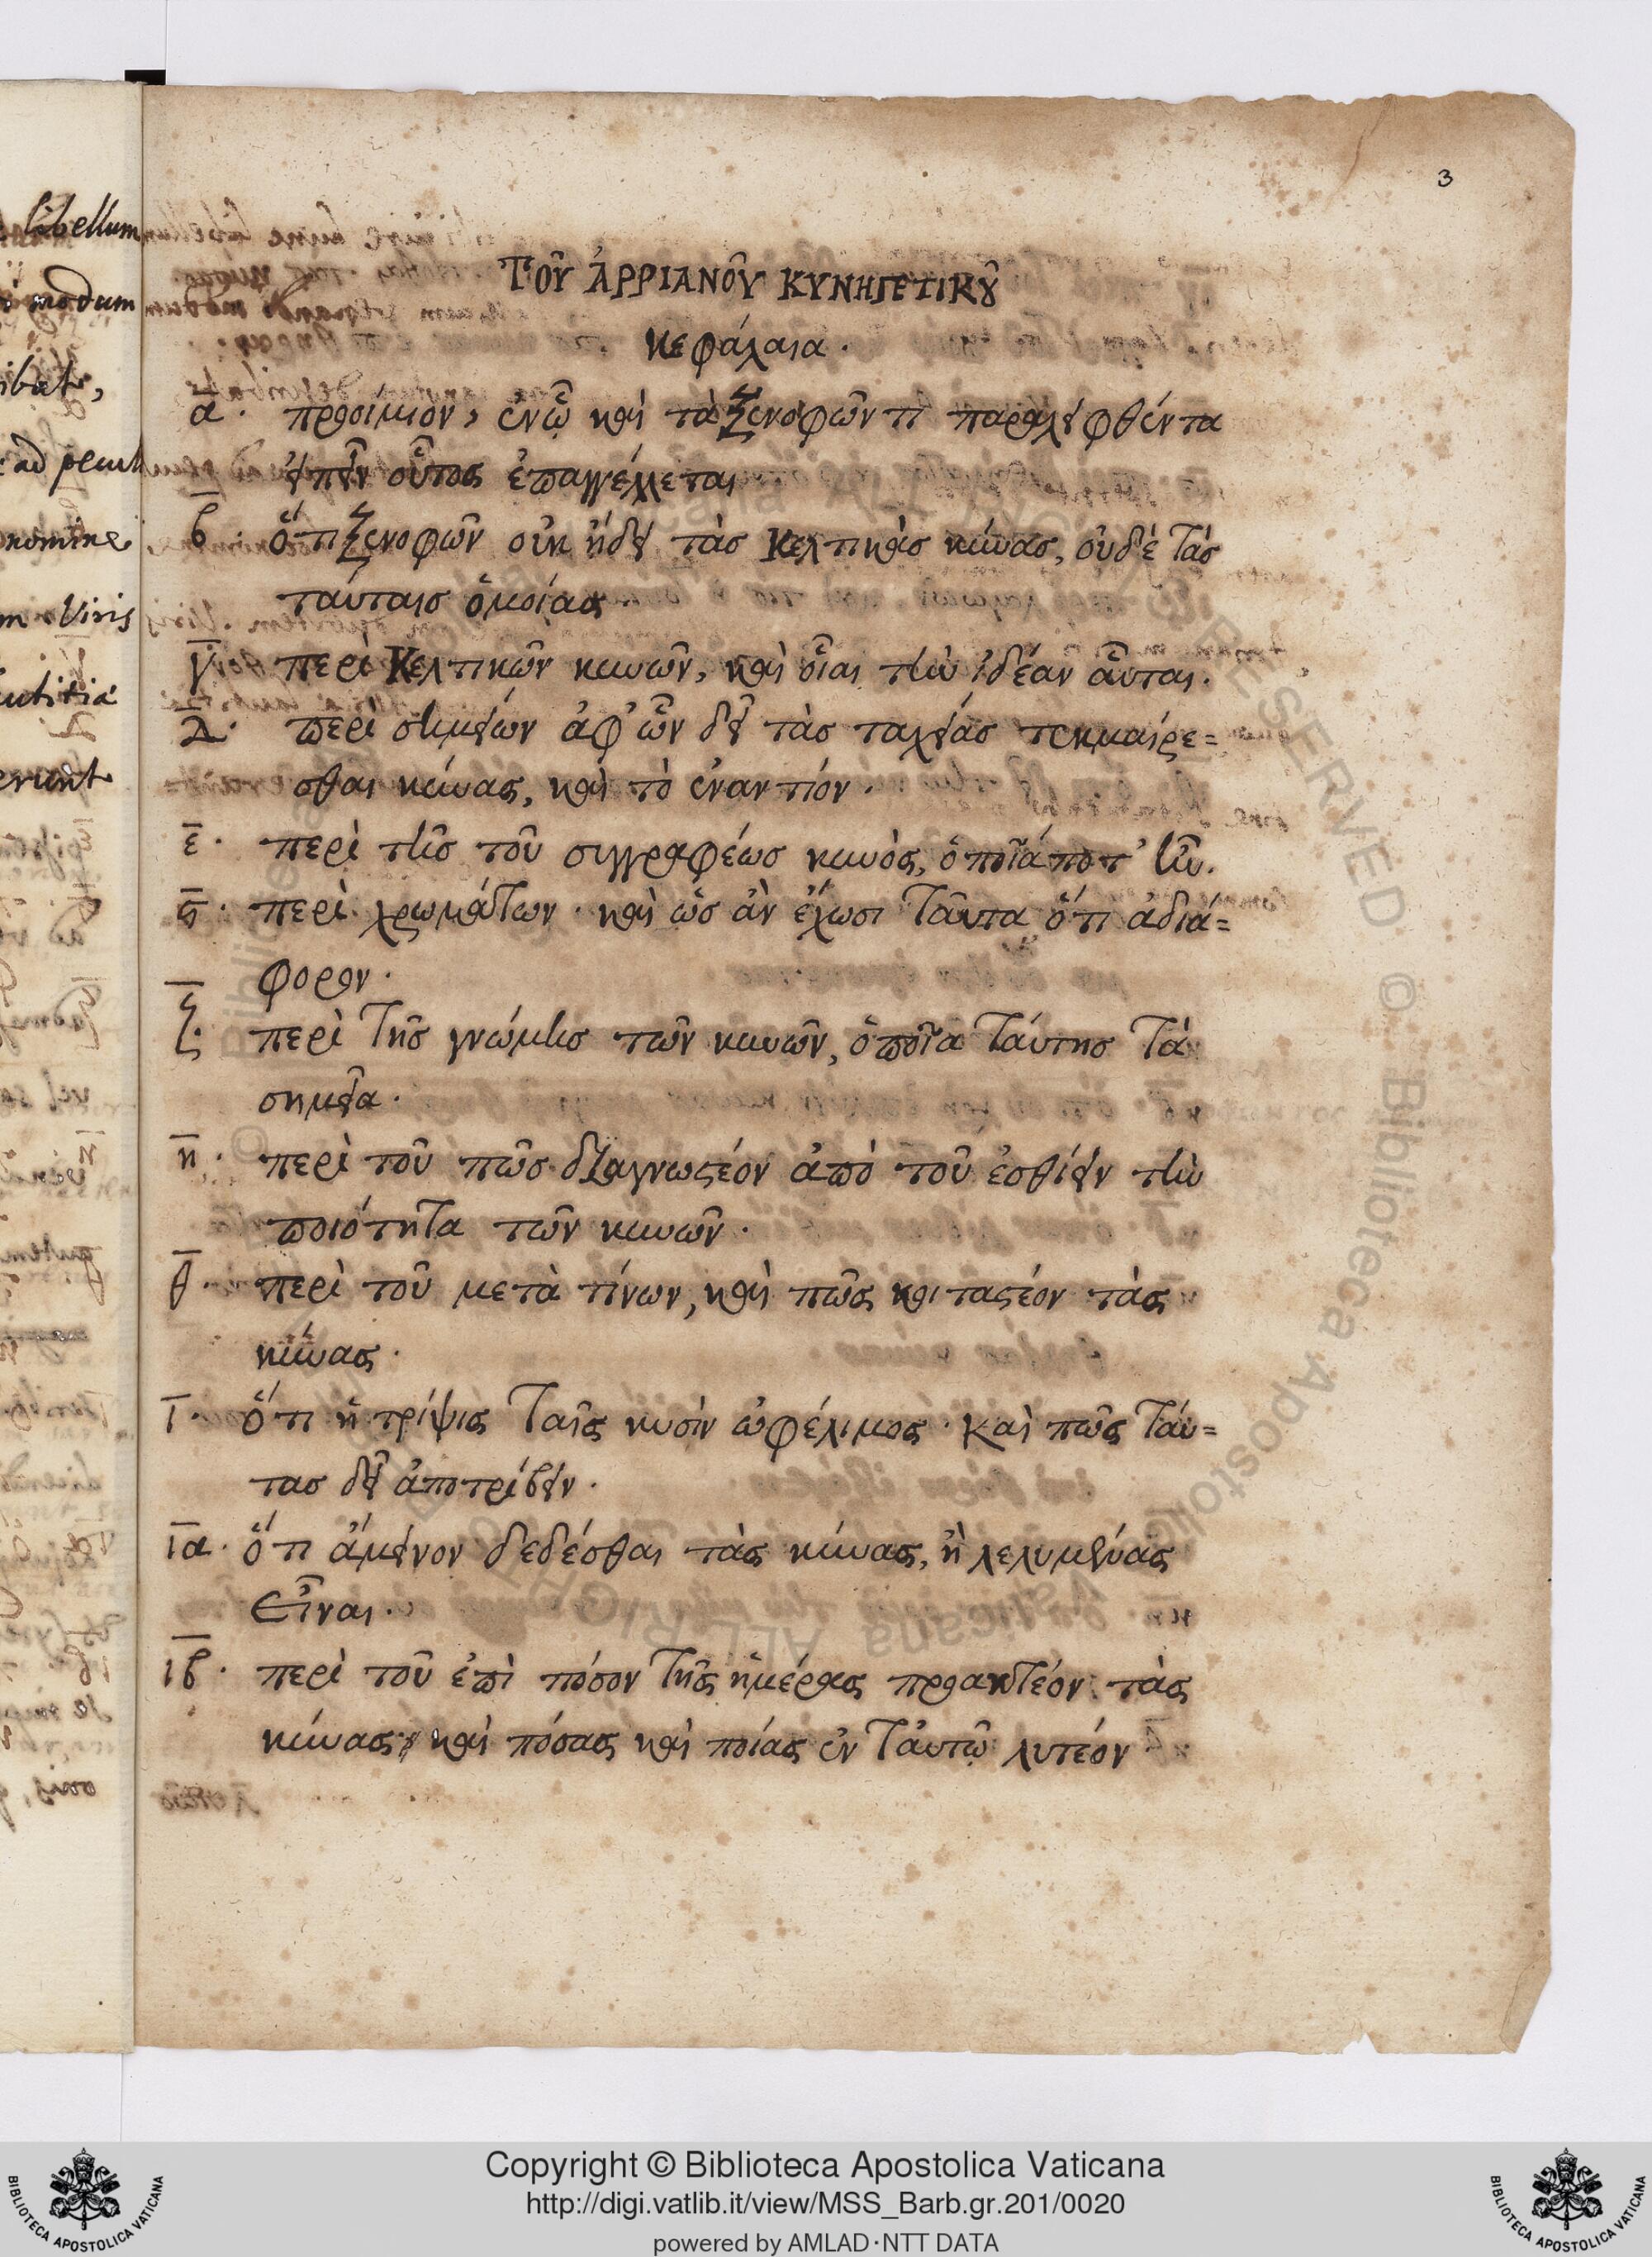 3
ΤΟΥ͂ ἈΡΡΙΑΝΟΥ͂ ΚΥΝΗΓΕΤΙΚΟΥ͂
κεφάλαια.
α. προοίμιον, ἐν ᾧ καὶ τὰ Ξενοφῶντι παραλειφθέντα
εἰπεῖν οὗτος ἐπαγγέλλεται
β. ὅτι Ξενοφῶν οὐκ ᾔδει τὰς Κελτικὰς κύνας, οὐδὲ τὰς
ταύταις ὁμοίας
γ. περὶ Κελτικῶν κυνῶν, καὶ οἷαι τὴν ἰδέαν αὗται.
δ. περὶ σημείων ἀφ' ὧν δεῖ τὰς ταχείας τεκμαίρε=
σθαι κύνας, καὶ τὸ ἐναντίον.
ε. περὶ τῆς τοῦ συγγραφέως κυνὸς, ὁποῖά ποτ' ἦν.
ϛ. περὶ χρωμάτων. καὶ ὡς ἀν ἔχωσι ταῦτα ὅτι ἀδιά=
φορον.
ζ. περὶ τῆς γνώμης τῶν κυνῶν, ὁποῖα ταύτης τὰ
σημεῖα.
η. περὶ τοῦ πῶς διαγνωστέον ἀπὸ τοῦ ἐσθίειν τὴν
ποιότητα τῶν κυνῶν.
θ. περὶ τοῦ μετὰ τίνων, καὶ πῶς κοιταστέον τὰς
κύνας.
ι. ὅτι ἡ τρίψις ταῖς κυσὶν ὠφέλιμος. καὶ πῶς ταύ=
τας δεῖ ἀποτρίβειν.
ια. ὅτι ἄμεινον δεδέσθαι τὰς κύνας, ἢ λελυμείνας
εἶναι.
ιβ. περὶ τοῦ ἐπὶ πόσον τῆς ἡμέρας προακτέον τὰς
κύνας, καὶ πόσας καὶ ποίας ἐν ταὐτῷ λυτέον
libellum
modum
nomine
Viris
erunt
© Biblioteca Apostolica Vaticana ALL RIGHTS RESERVED © Biblioteca Apostolica Vaticana ALL RIGHTS RESERVED
Copyright © Biblioteca Apostolica Vaticana
http://digi.vatlib.it/view/MSS_Barb.gr.201/0020
powered by AMLAD·NTT DATA
BIBLIOTECA APOSTOLICA VATICANA
BIBLIOTECA APOSTOLICA VATICANA